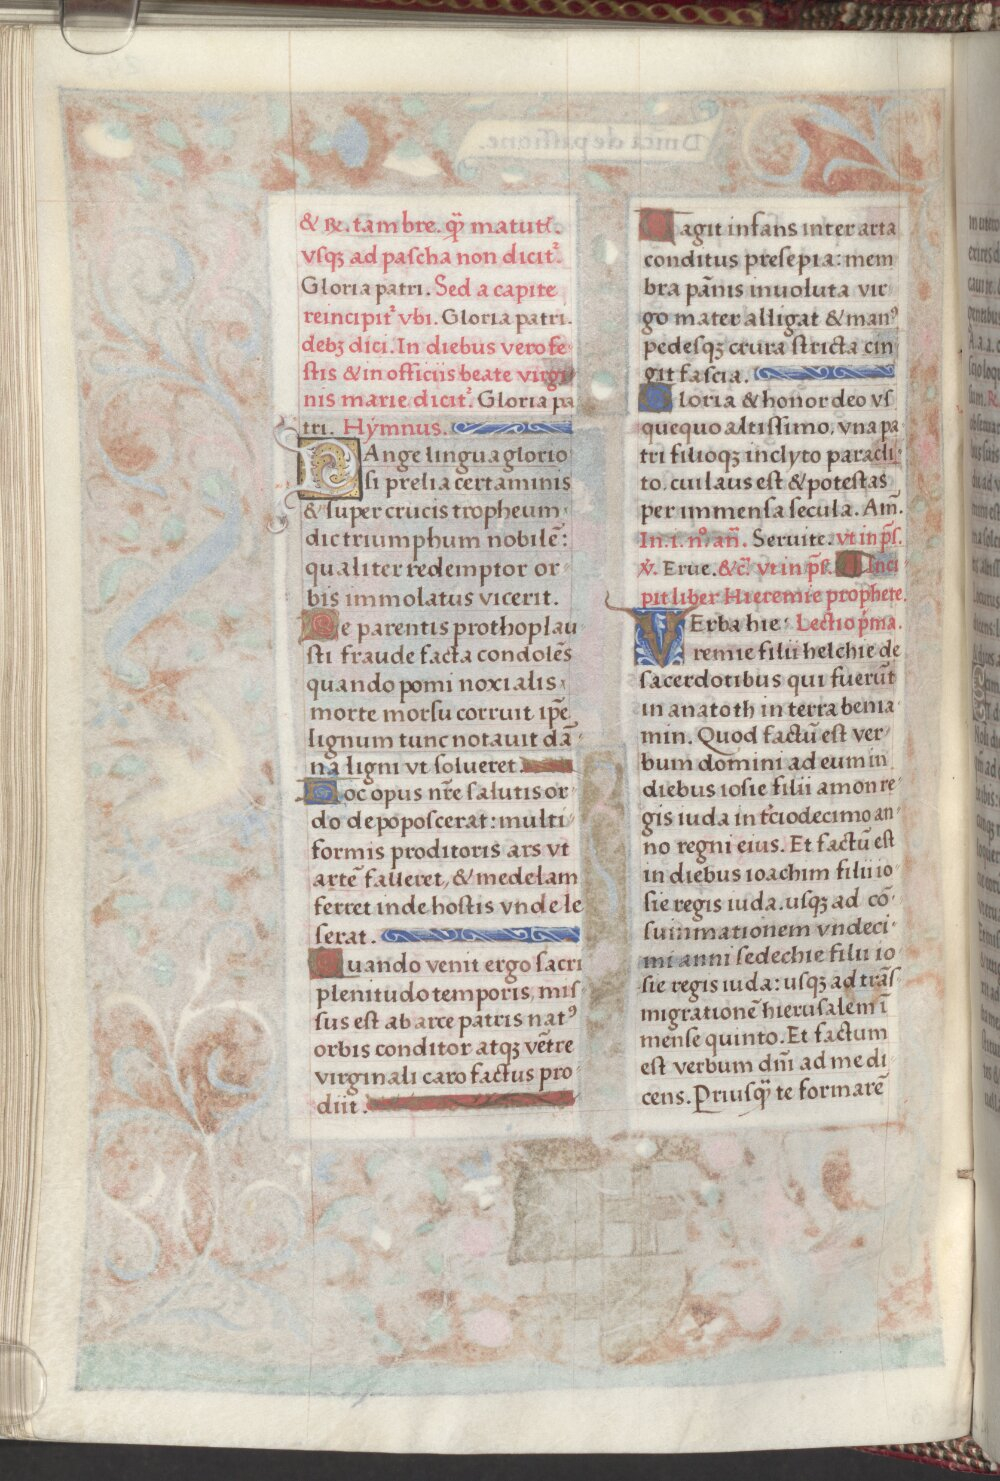 & ꝶ. tam bre. qͣ̃ matutꝭ.
vſqꝫ ad paſcha non diciť.
Gloria patri. Sed a capite
reincipiť vbi. Gloria patri.
debꝫ dici. In diebus vero fe
ſtis & in officiis beate virgi
nis marie diciť. Gloria pa
tri. Hymnus.
PAnge lingua glorio
ſi prelia certaminis
& ſuper crucis tropheum
dic triumphum nobilē:
qualiter redemptor or
bis immolatus vicerit.
De parentis prothoplau
ſti fraude facta condolēs
quando pomi noxialis
morte morſu corruit ip̄e
lignum tunc notauit dā
na ligni vt ſolueret.
Hoc opus nr̄e ſalutis or
do depopoſcerat: multi
formis proditoris ars vt
artē falleret, & medelam
ferret inde hoſtis vnde le
ſerat.
Quando venit ergo ſacri
plenitudo temporis, miſ
ſus eſt ab arce patris natꝰ
orbis conditor atqꝫ vētre
virginali caro factus pro
diit.
Vagit infans inter arta
conditus preſepia: mem
bra pānis inuoluta vir
go mater alligat & manꝰ
pedeſqꝫ crura ſtricta cin
git faſcia.
Gloria & honor deo vſ
quequo altiſſimo, vna pa
tri filioqꝫ inclyto paracli
to. cui laus eſt & poteſtas
per immenſa ſecula. Am̄.
In .i. nº. an̄. Seruite. vt in pš.
℣. Erue. &c̄. vt in pš. Inci
pit liber Hieremie prophete.
VErba hie Lectio pͥma.
remie filii helchie de
ſacerdotibus qui fuerūt
in anatoth in terra benia
min. Quod factū eſt ver
bum domini ad eum in
diebus ioſie filii amon re
gis iuda in tͨciodecimo an
no regni eius. Et factū eſt
in diebus ioachim filii io
ſie regis iuda. uſqꝫ ad cō
ſummationem vndeci
mi anni ſedechie filii io
ſie regis iuda: uſqꝫ ad trāſ
migrationē hieruſalem ī
menſe quinto. Et factum
eſt verbum dn̄i ad me di
cens. Priuſqͣ̃ te formarē